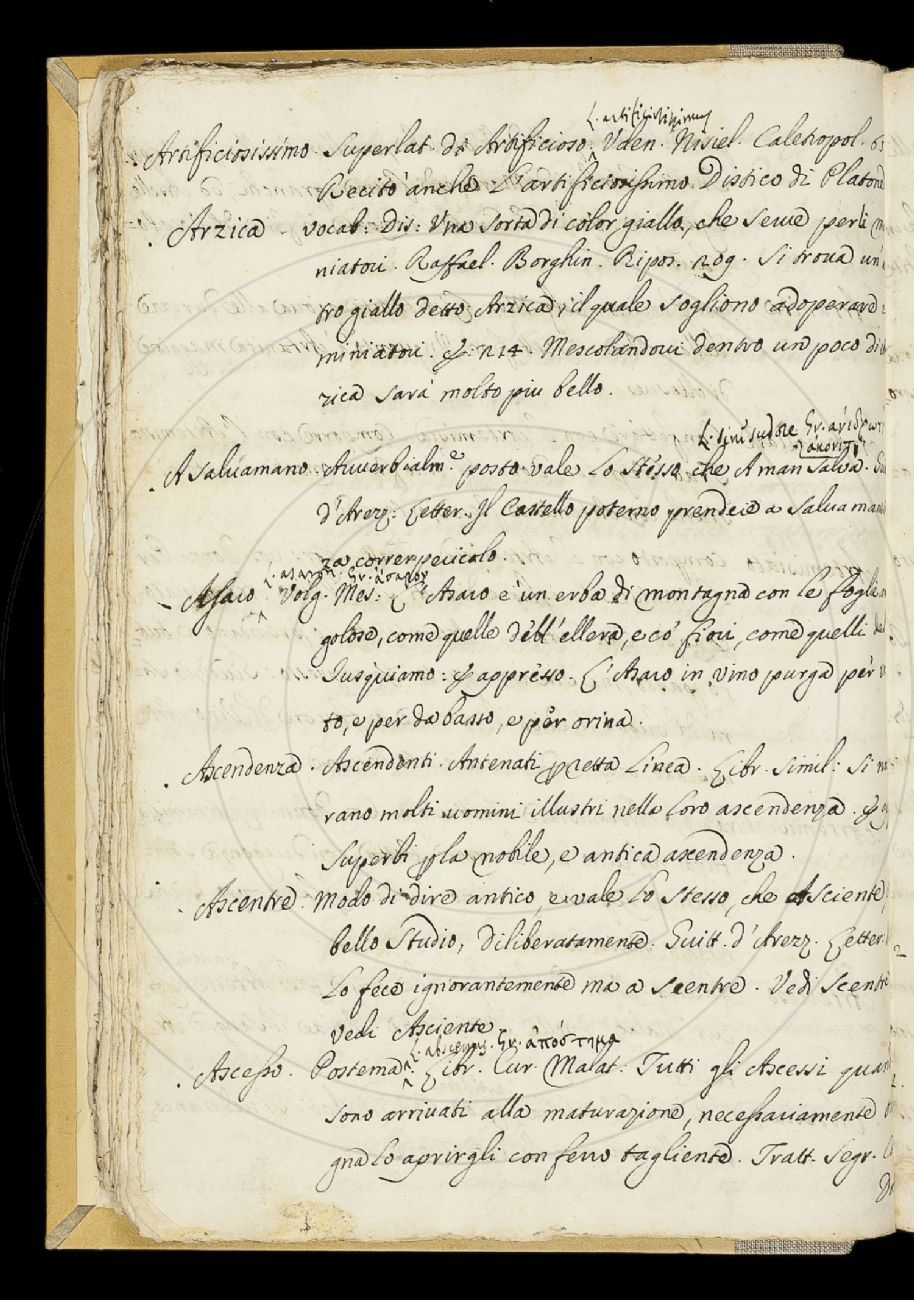 L. artificiosissimus
Artificiosissimo. Superlat. di Artificioso. Uden. Nisiel. Caletropol. 63
Recitò anche l'artificiosissimo Distico di Platone
Arzica. vocab: Dis: Una sorta di color giallo, che serve per li m
niatori. Raffael. Borghin. Ripos. 209. Si trova un'
tro giallo detto Arzica, il quale sogliono adoperare
miniatori. E: 214 Mescolandovi dentro un poco di
zica sarà molto piu bello.
L. sine sudore Gr. ἀνιδρωτὶ
ἀκονιτὶ
A salvamano. Avverbialm.e posto vale lo stesso, che A man salva.
d'Arez: Letter. Il Castello poterno prendere a salvaman
za correr pericolo.
L. asarum. Gr. ἄσαρον
Asaro. Volg. Mes: L'Asaro è un erba di montagna con le fogli
golose, come quelle dell'ellera, e co' fiori, come quelli del
Jusquiamo: E appresso. L'Asaro in vino purga per
to, e per da basso, e per orina.
Ascendenza. Ascendenti. Antenati p retta Linea. Libr. simil: Si
rano molti uomini illustri nella loro ascendenza. E
superbi p la nobile, e antica ascendenza.
Ascentre. Modo di dire antico, e vale lo stesso, che Asciente,
bello studio, Diliberatamente. Guitt. d'Arezz. Letter.
Lo fece ignorantemente ma a scentre. Vedi Scentre
vedi Asciente
L. abscessus. Gr. ἀπόστημα
Ascesso. Postema. Libr. Cur. Malat. Tutti gli Ascessi quan
sono arrivati alla maturazione, necessariamente
gna lo aprirgli con ferro tagliente. Tratt. Segr.